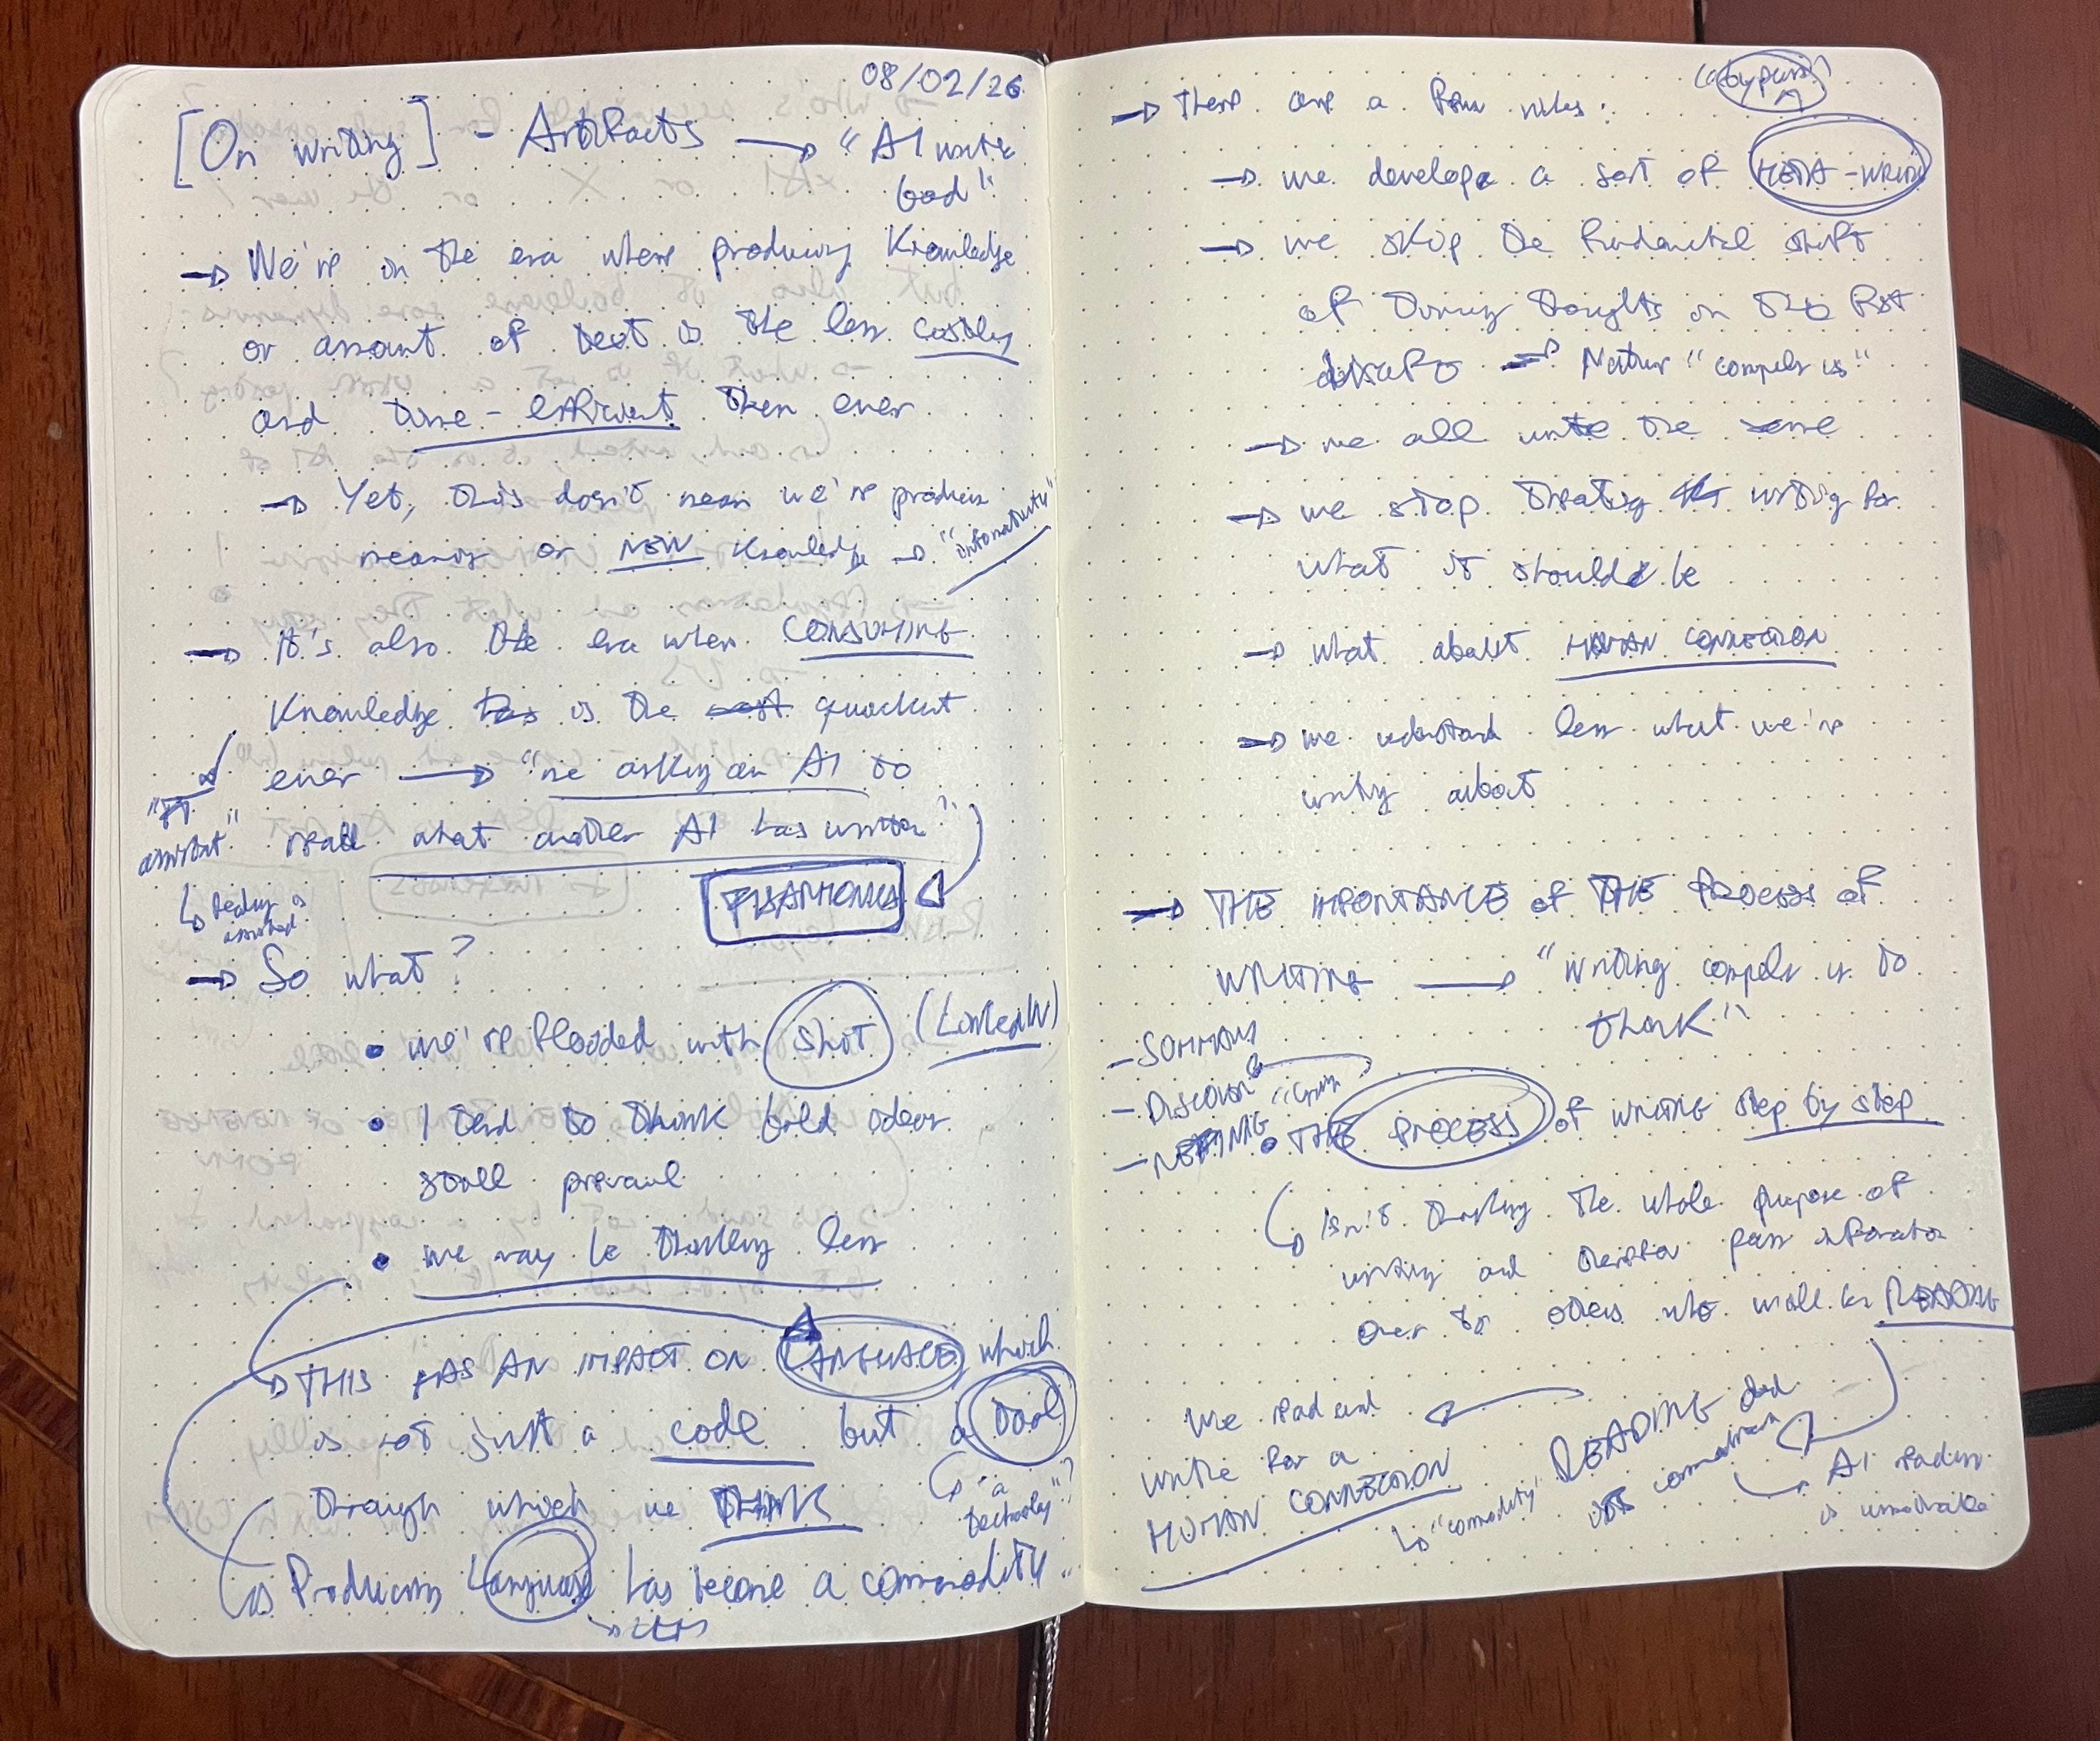 08/02/26
[On writing] - Artifacts → "AI write
bad"
→ We're in the era where producing knowledge
or amount of text is the less costley
and time-efficient then ever
→ Yet, this doesn't mean we're producing
meaning or NEW knowledge → "informativity"
→ It's also the era when CONSUMING
Knowledge is the quickest
ever → "me asking an AI to
"AI
assistant" read what another AI has written"
↳ Reading is
assisted
→ So what?
• we're flooded with shit (LinkedIN)
• I tend to think bold ideas
still prevail
• we may be thinking less
→ THIS HAS AN IMPACT ON LANGUAGE, which
is not just a code but a tool
through which we THINK
↳ "a
technology"?
↳ Producing Language has become a commodity
→ There are a few risks:
→ we develop a sort of META-WRITING
→ we skip the fundamental shift
of turning thoughts in the first
drafts → Matter "compels us"
→ we all write the same
→ we stop treating writing for
what it should be
→ what about HUMAN CONNECTION
→ we understand less what we're
writing about
→ THE IMPORTANCE of THE PROCESS of
WRITING → "Writing compels us to
think"
- SUMMARY
- DISCOVER
• THE PROCESS of WRITING step by step
↳ Isn't thinking the whole purpose of
writing and therefore pass information
over to others who will be READING
We read and
write for a
HUMAN CONNECTION
↳ "commodity"
READING and
AI reading
is unavoidable